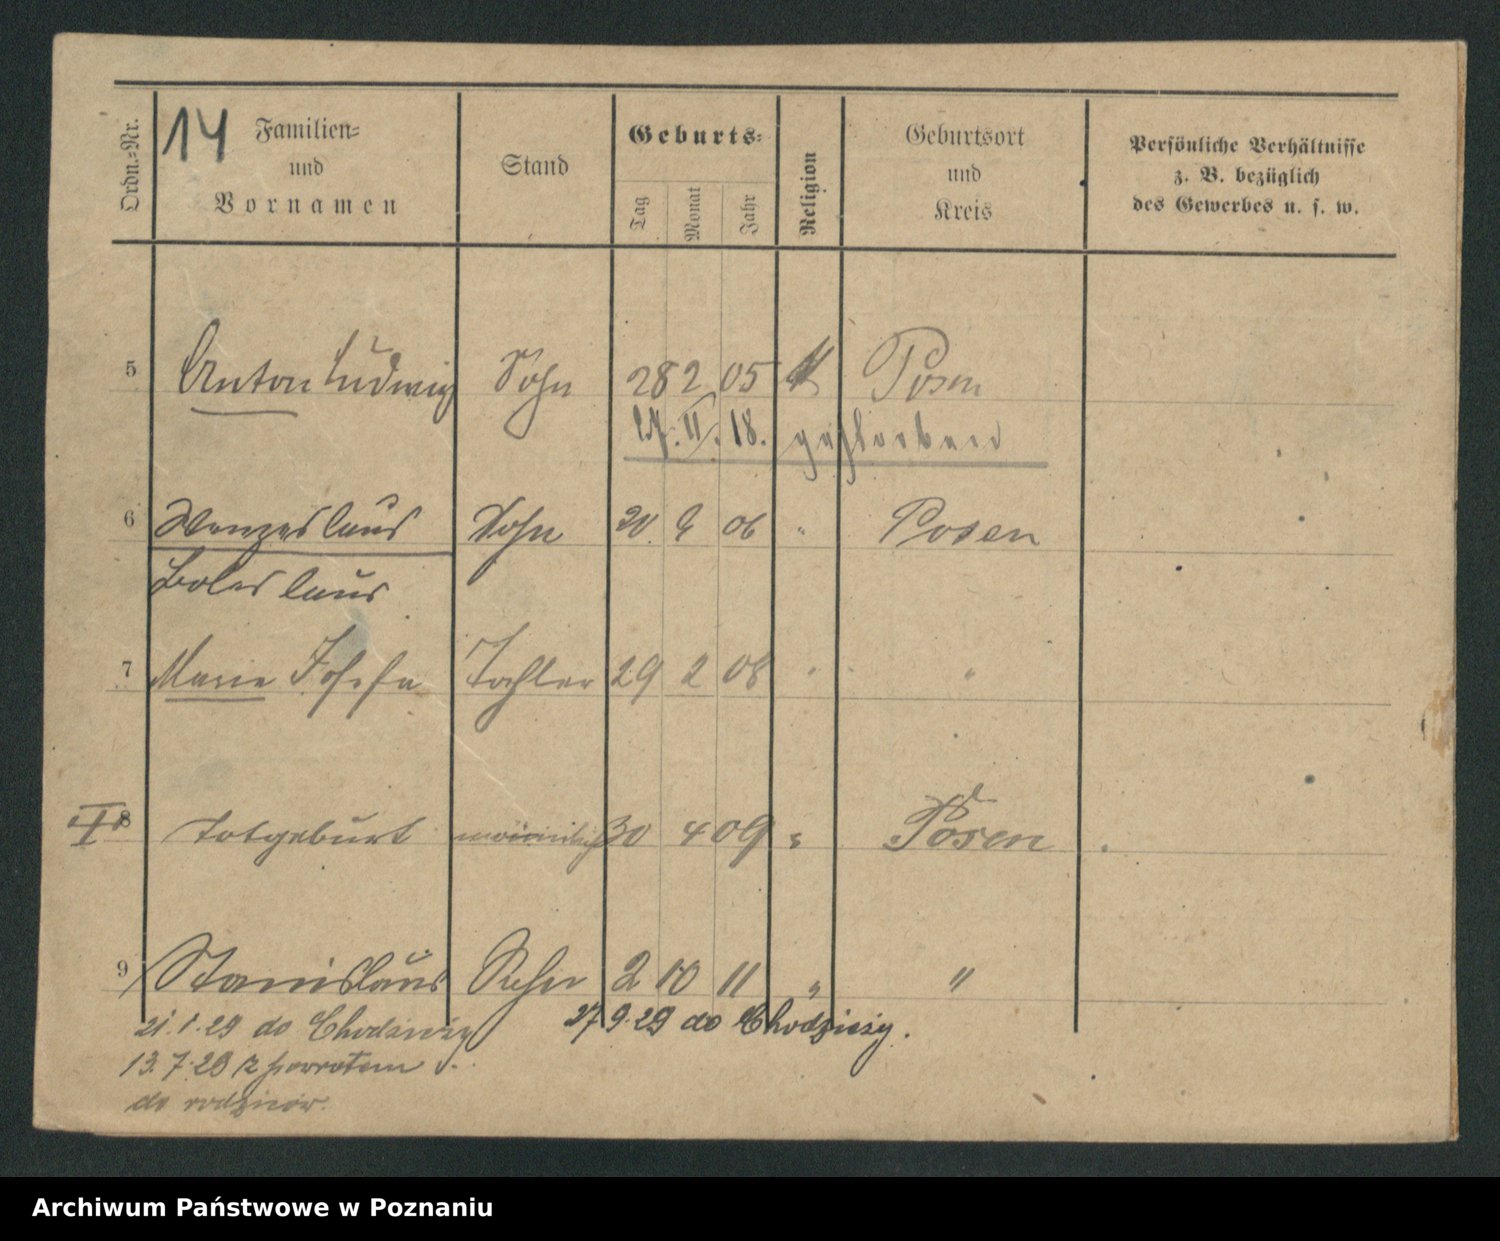 Ordn.-Nr.
14
Familien-
und
Vornamen
Stand
Geburts-
Tag
Monat
Jahr
Religion
Geburtsort
und
Kreis
Persönliche Verhältnisse
z. B. bezüglich
des Gewerbes u. s. w.
5 Anton Ludwig Sohn 28 2 05 Posen
II. 18. gestorben
6 Wenzeslaus Sohn 20. 9 06 " Posen
Boleslaus
7 Marie Josefa Tochter 29 2 08 " "
8 Totgeburt männlich 30 4 09 " Posen
9 Stanislaus Sohn 2 10 11 " "
21.1.29 do Chodzieży
27.9.29 do Chodzieży.
13.7.29 z powrotem
do rodziców.
Archiwum Państwowe w Poznaniu